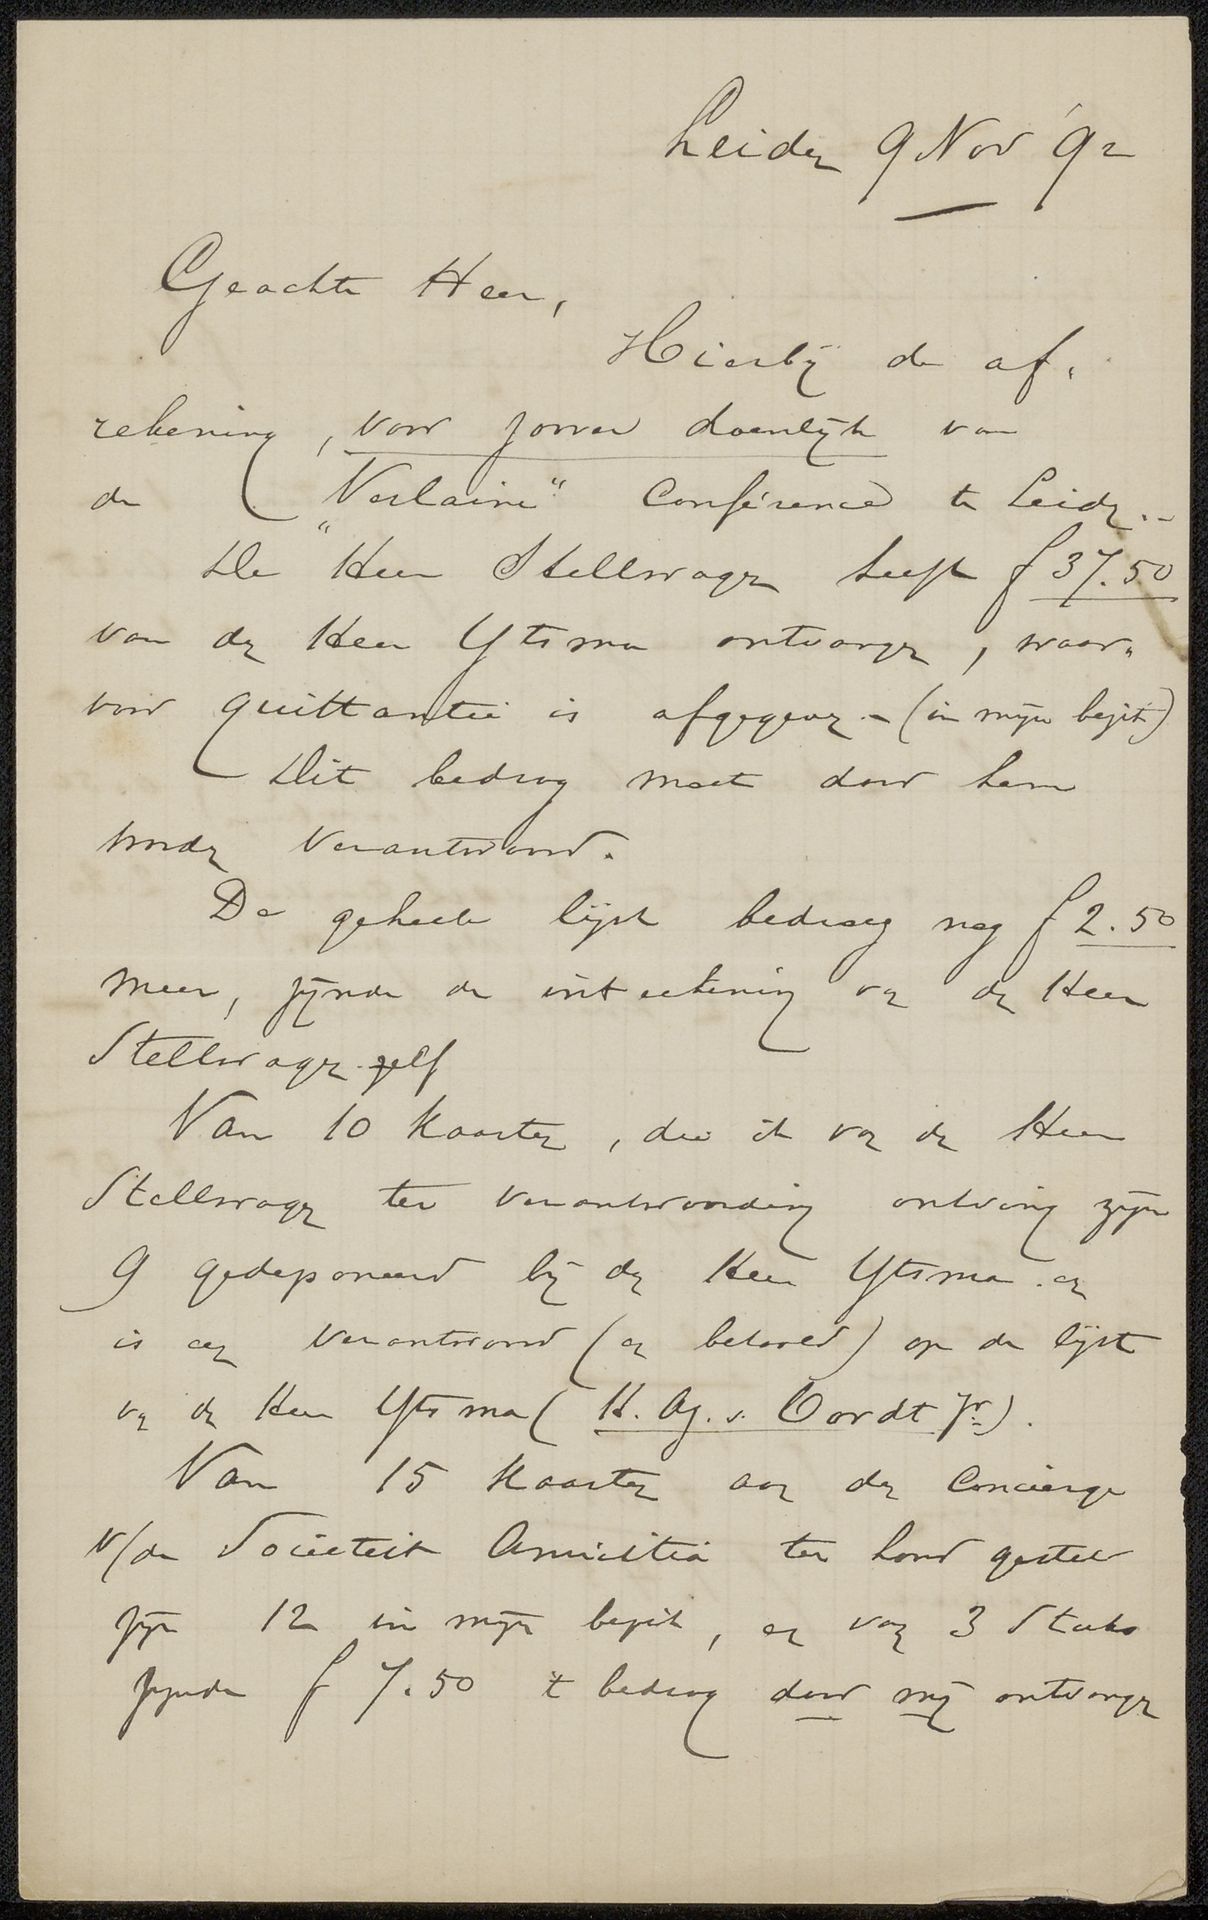 Leiden 9 Nov '92
Geachte Heer,
Hierbij de af-
rekening, voor zoover doenlijk van
de "Verlaine" Conférence te Leiden.
De Heer Stellwagen heeft f 37.50
van den Heer Ytsma ontvangen, waar-
voor quittantie is afgegeven - (in mijn bezit)
Dit bedrag moet door hem
worden verantwoord.
De geheele lijst bedraag nog f 2.50
meer, zijnde de inteekening van den Heer
Stellwagen zelf
Van 10 kaarten, die ik van den Heer
Stellwagen ter verantwoording ontving zijn
9 gedeponeerd bij den Heer Ytsma en
is een verantwoord (en betaald) op de lijst
van den Heer Ytsma (H. Ag. v. Oordt Jr).
Van 15 kaarten aan den Concierge
v/de Societeit Amicitia ter hand gesteld
zijn 12 in mijn bezit, en van 3 Stuks
zijnde f 7.50 't bedrag door mij ontvangen